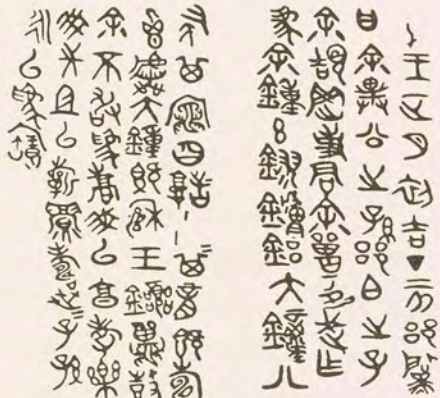 隹王正月初吉丁亥郘
曰余畢公之孫郘白之子
余頡岡事君余嘼武乍
為余鐘玄鏐鏞鋁大鐘八
聿其竈四堵喬喬其龍既
鬯虡大鐘既縣玉鼉鼓
余不敢為喬我以享孝樂
我先祖以祈眉壽世世子孫
永以為寶